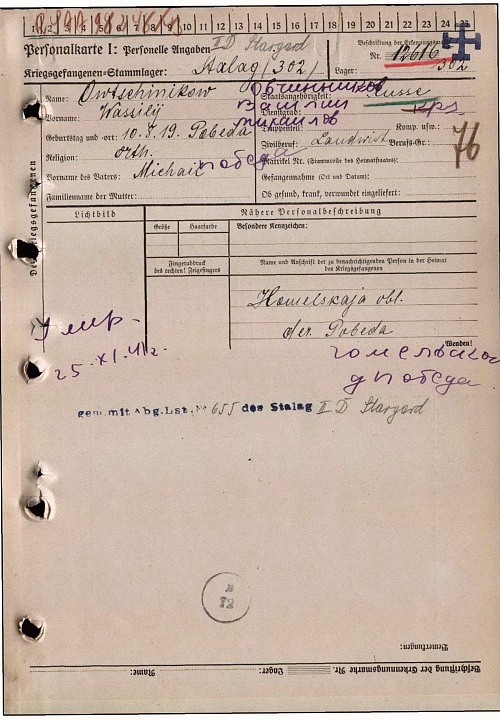 1 2 3 4 5 6 7 8 9 10 11 12 13 14 15 16 17 18 19 20 21 22 23 24 25
Personalkarte I: Personelle Angaben II D Stargard
Beschriftung der Erkennungsmarke
Nr. 12616
Kriegsgefangenen-Stammlager: Stalag (302)
Lager: 302
Name: Owtschinikow
Овчинников
Staatsangehörigkeit: Russe
Vorname: Wassilij
Василий
Dienstgrad:
Михайлов
Geburtstag und -ort: 10.8.19. Pobeda
Truppenteil: Komp. usw.:
Zivilberuf: Landwirt Berufs-Gr.:
76
Religion: orth.
победа
Matrikel Nr. (Stammrolle des Heimatstaates):
Vorname des Vaters: Michail
Gefangennahme (Ort und Datum):
Familienname der Mutter:
Ob gesund, krank, verwundet eingeliefert:
Des Kriegsgefangenen
Lichtbild
Nähere Personalbeschreibung
Größe Haarfarbe Besondere Kennzeichen:
Fingerabdruck
des rechten! Zeigefingers
Name und Anschrift der zu benachrichtigenden Person in der Heimat
des Kriegsgefangenen
Homelskaja obl.
der. Pobeda
Wenden!
Умер.
25.XI.41г.
гомельской
д победа
gem. mit Abg.Lst. № 655 des Stalag II D Stargard
72
Bemerkungen:
Name: Lager: Beschriftung der Erkennungsmarke Nr.